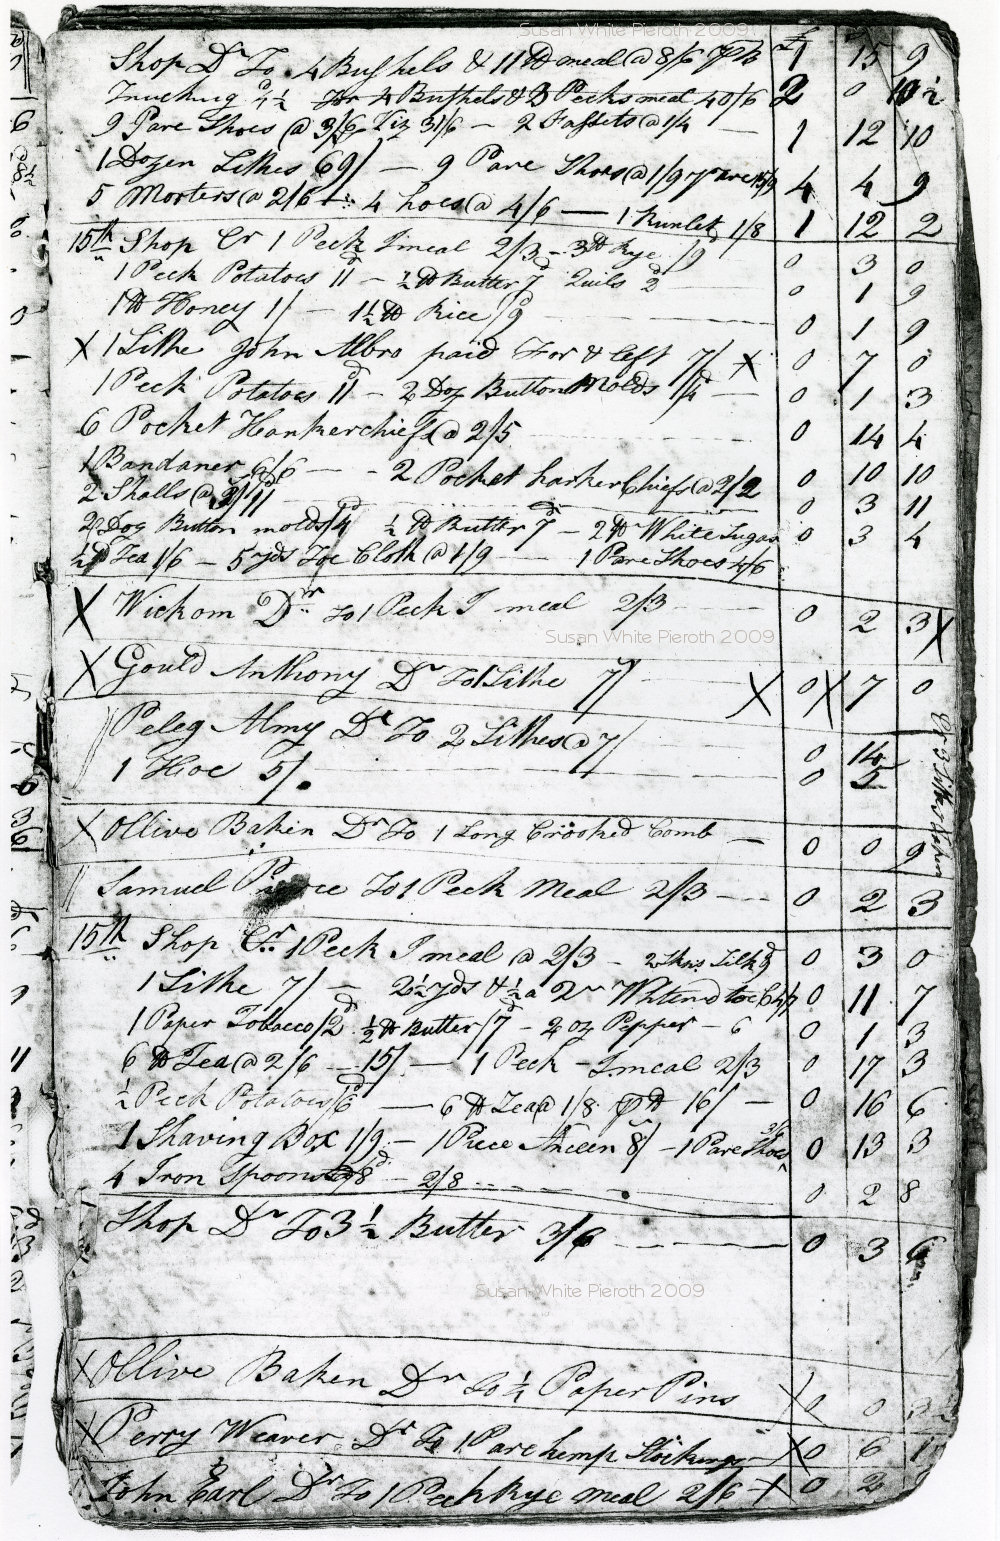 Susan White Pieroth 2009
£
Shop Dr To 4 Bushels & 11 lb meal @ 8/6 1 15 9
Trucking 4½ 4 Bushels & 3 Pecks meal 40/6 2 0 10½
9 Pare Shoes @ 3/6 Viz 31/6 — 2 Fassets @ 1/4 — 1 12 10
1 Dozen Sithes 69/ — 9 Pare Shoes @ 1/9 pr Pare 15/9 4 4 9
5 Morters @ 2/6 — 4 hoes @ 4/6 — 1 Runlet 1/8 1 12 2
15th Shop Cr 1 Peck I meal 2/3 – 3 lb Rye /9 0 3 0
1 Peck Potatoes 11d – ½ lb Butter 7d Quils 2d 0 1 9
1 lb Honey 1/ — 1½ lb Rice /9 0 1 9
X 1 Sithe John Albro paid For & left 7/ X 0 7 0
1 Peck Potatoes 11d – 2 Doz Button Molds /4 — 0 1 3
6 Pocket Hankerchiefs @ 2/5 0 14 4
1 Bandaner 6/6 — - 2 Pocket harkerChiefs @ 2/2 0 10 10
2 Shalls @ /11 0 3 11
2 Dog Button molds /4 ½ lb Butter 7d – 2 lb White Sugar 0 3 4
½ lb Tea 1/6 – 5 yds Toe Cloth @ 1/9 — 1 Pare Shoes 4/6
X Wickom Dr To 1 Peck I meal 2/3 0 2 3 X
Susan White Pieroth 2009
X Gould Anthony Dr To 1 Sithe 7/ X 0 X 7 0
Peleg Almy Dr To 2 Sithes @ 7/ 0 14
1 Hoe 5/. 0 5
X Ollive Baken Dr To 1 Long Crooked Comb — 0 0 9
Samuel Pearce To 1 Peck Meal 2/3 --- 0 2 3
15th Shop Cr 1 Peck I meal @ 2/3 – 2 Silk 9 0 3 0
1 Sithe 7/ — 2½ yds & ½ a Qr 4/7 0 11 7
1 Paper Tobacco /2d ½ lb Butter /7d – 2 oz Pepper – 6 0 1 3
6 lb Tea @ 2/6 — 15/ — 1 Peck – I meal 2/3 0 17 3
½ Peck Potatoes /6 — 6 lb Tea @ 1/8 pr lb 16/ — 0 16 6
1 Shaving Box 1/9 – 1 Piece 8/ – 1 Pare Shoes 0 13 3
4 Iron Spoons @ 8d – 2/8 0 2 8
Shop Dr To 3½ Butter 3/6 0 3 6
Susan White Pieroth 2009
X Ollive Baken Dr To ½ Paper Pins X 0 0
X Perry Weaver Dr To 1 Pare hemp Stockings – X 0 6
John Earl Dr To 1 Peck Rye meal 2/6 X 0 2